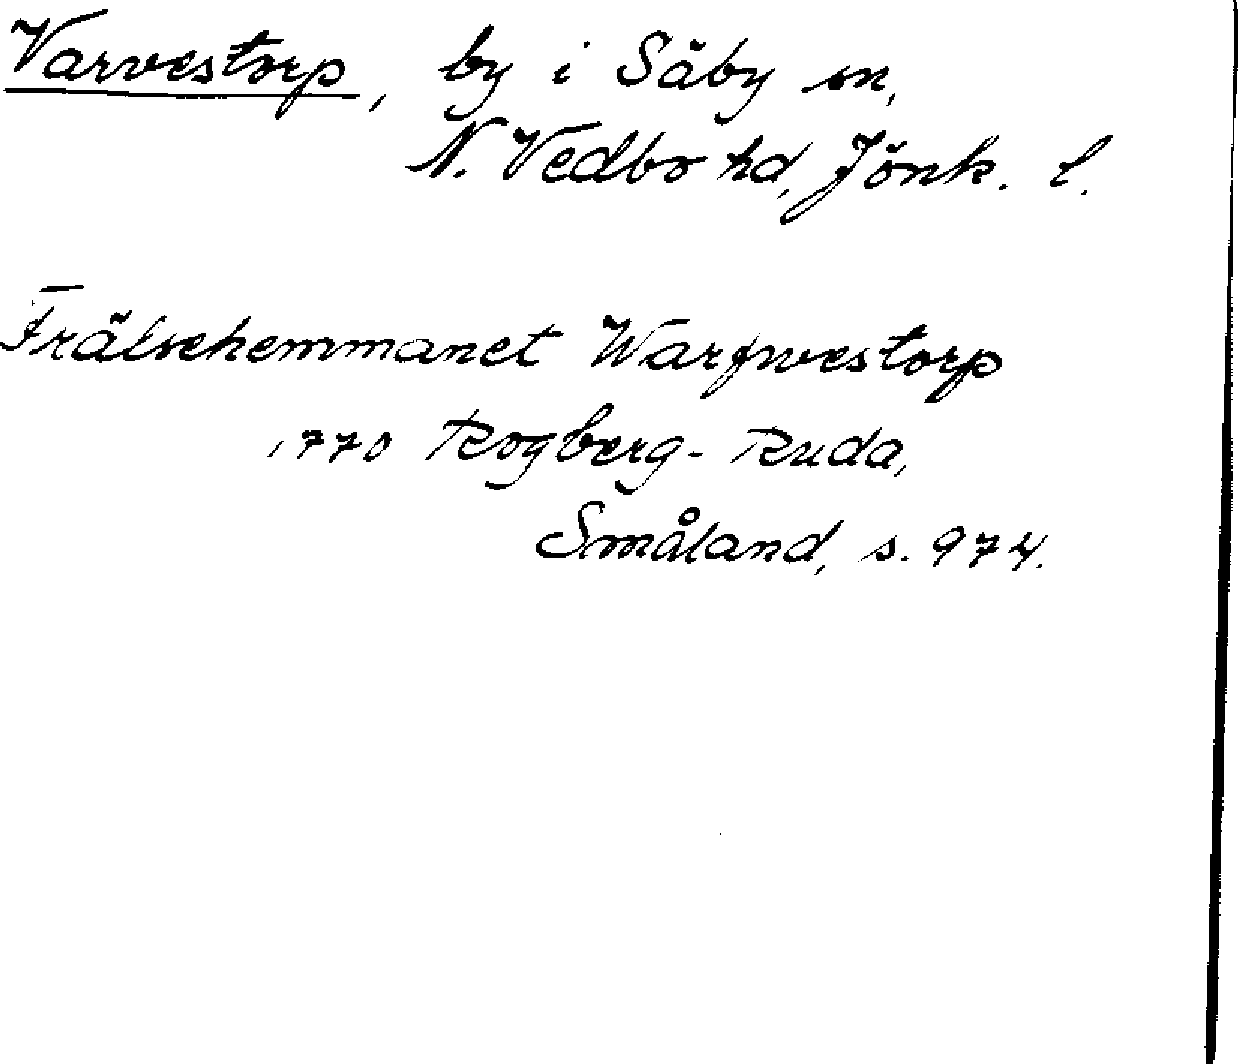 Varvestorp, by i Säby sn,
N. Vedbo hd, Jönk. l.
Frälsehemmanet Warfwestorp
1770 Rogberg-Ruda,
Småland, s. 974.